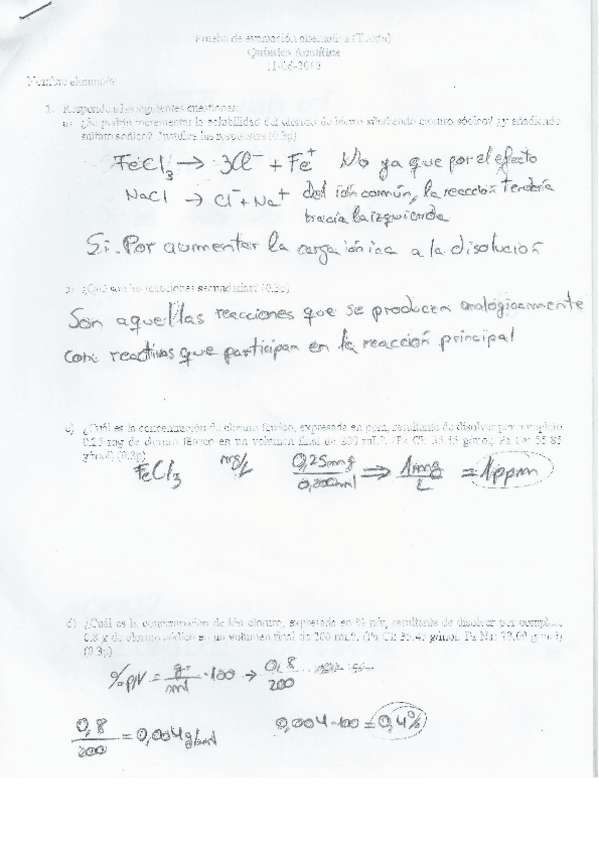 Prueba de evaluación alternativa (Teoría)
Química Analítica
11-06-2013
Nombre alumno/a
1. Responde a las siguientes cuestiones:
a) ¿Se podría incrementar la solubilidad del cloruro de hierro añadiendo cloruro sódico? ¿y añadiendo
sulfato sódico? Justifica las respuestas (0.3p)
FeCl3 → 3Cl⁻ + Fe⁺ No ya que por el efecto
NaCl → Cl⁻ + Na⁺ del ión común, la reacción tendería
hacia la izquierda
Si. Por aumentar la carga iónica a la disolución
b) ¿Qué son las reacciones secundarias? (0.3p)
Son aquellas reacciones que se producen analógicamente
con reactivos que participan en la reacción principal
c) ¿Cuál es la concentración de cloruro férrico, expresada en ppm, resultante de disolver por completo
0.25 mg de cloruro férrico en un volumen final de 200 mL?. (Pa Cl: 35.45 g/mol; Pa Fe: 55.85
g/mol) (0.3p)
FeCl3 mg/L 0,25mg/0,200ml ⇒ 1mg/L = 1ppm
d) ¿Cuál es la concentración de ión cloruro, expresada en % p/v, resultante de disolver por completo
0.8 g de cloruro sódico en un volumen final de 200 mL?. (Pa Cl: 35.45 g/mol; Pa Na: 23.00 g/mol)
(0.3p)
%p/v = gr/ml · 100 → 0,8/200
0,8/200 = 0,004 g/ml 0,004 · 100 = 0,4%